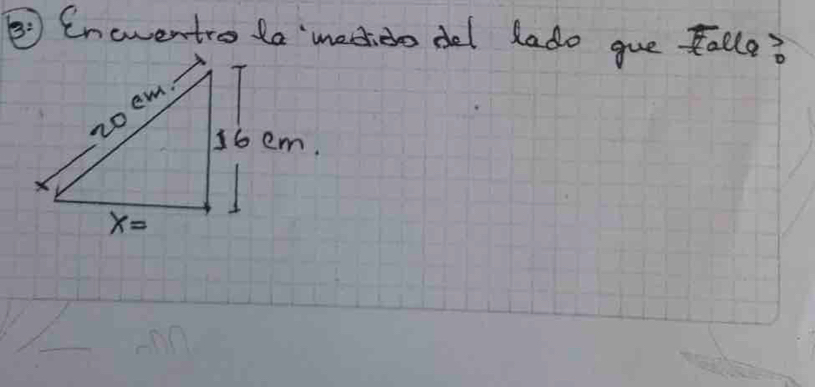 3: Encuentro la medida del lado que Falla?
20 cm.
16 cm.
X=